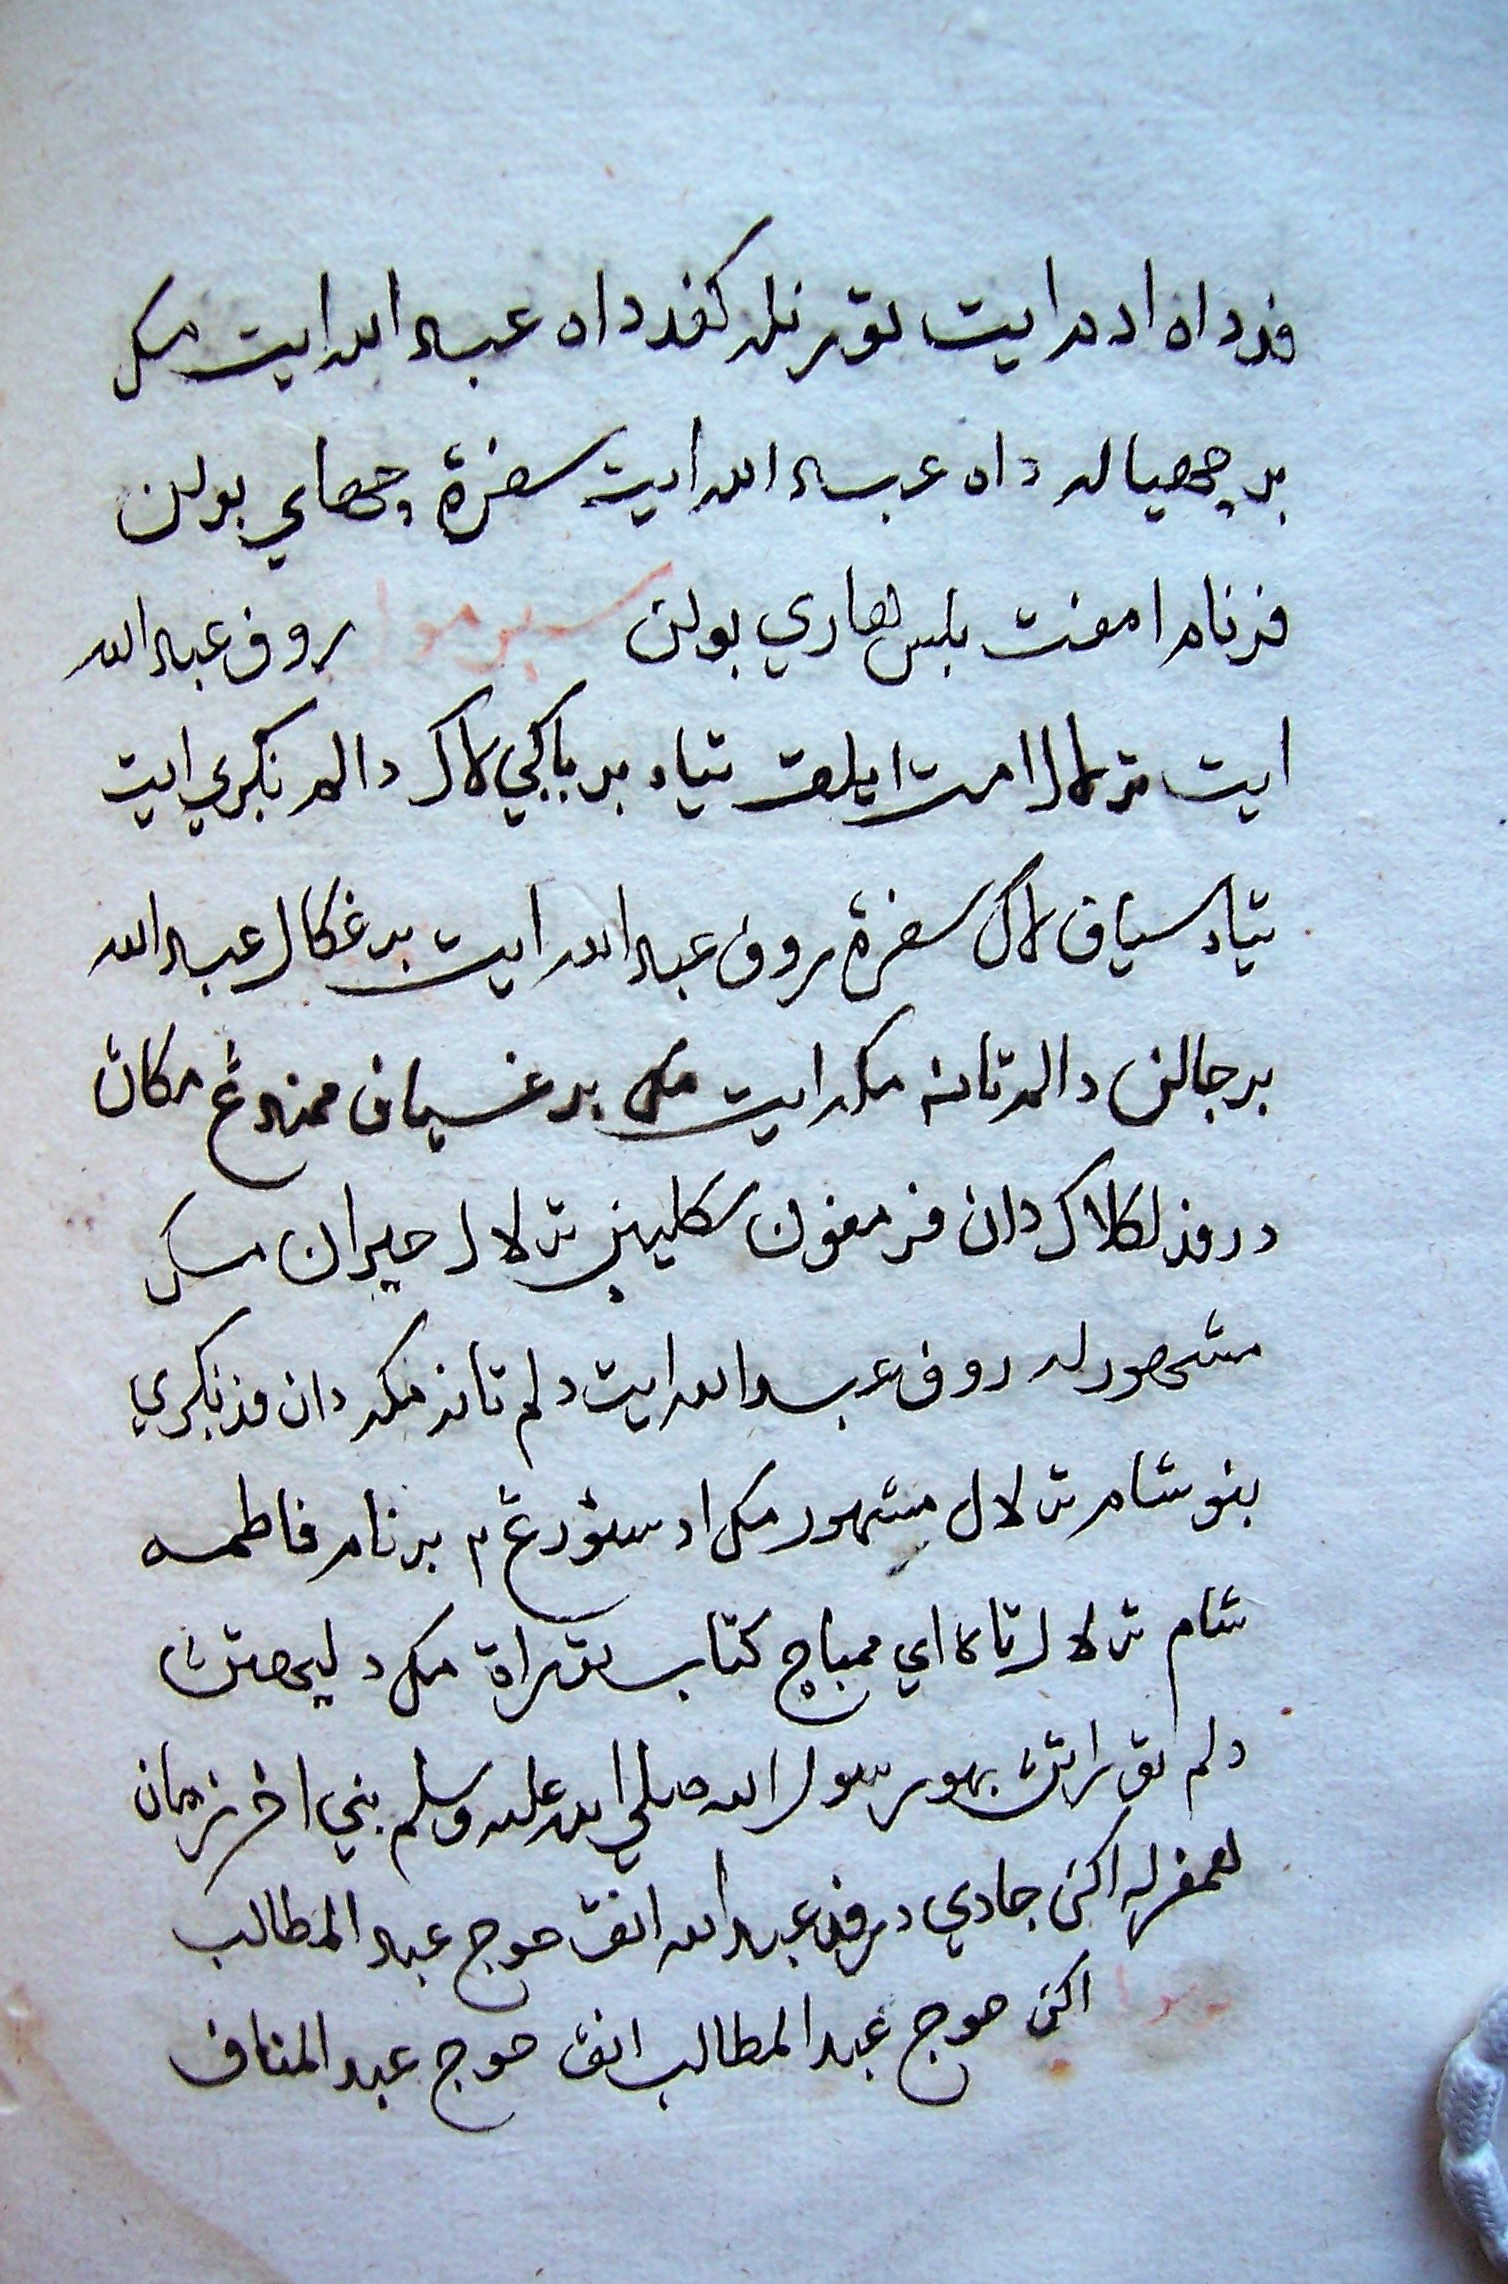 فد داه ادم ايت تورنله كفد داه عبد الله ايت مک
برچهياله داه عبد الله ايت سفرة چهاي بولن
فرنام امفت بلس هاري بولن سبرمول روف عبد الله
ايت ترلال امت ايلق تياد برباکي لاک دالم نکري ايت
تياد سياف لاک سفرة روف عبد الله ايت برغكال عبد الله
برجالن دالم تانه مكه ايت مک برغسياف ممندغ مكان
در فد لكلاک دان فرمفون سكلين ترلال حيران مک
مشهورله روف عبد الله ايت دلم تانه مكه دان فد نكري
بنو شام ترلال مشهور مک اد سؤرغ ٢ برنام فاطمه
شام ترلال تاه اي ممباچ كتاب توراة مک دليهتن
دلم توراتن بهو رسول الله صلي الله عليه وسلم نبي اخر زمان
همفرله اكن جادي در فد عبد الله انق حوج عبد المطالب
اكن حوج عبد المطالب انق حوج عبد المناف